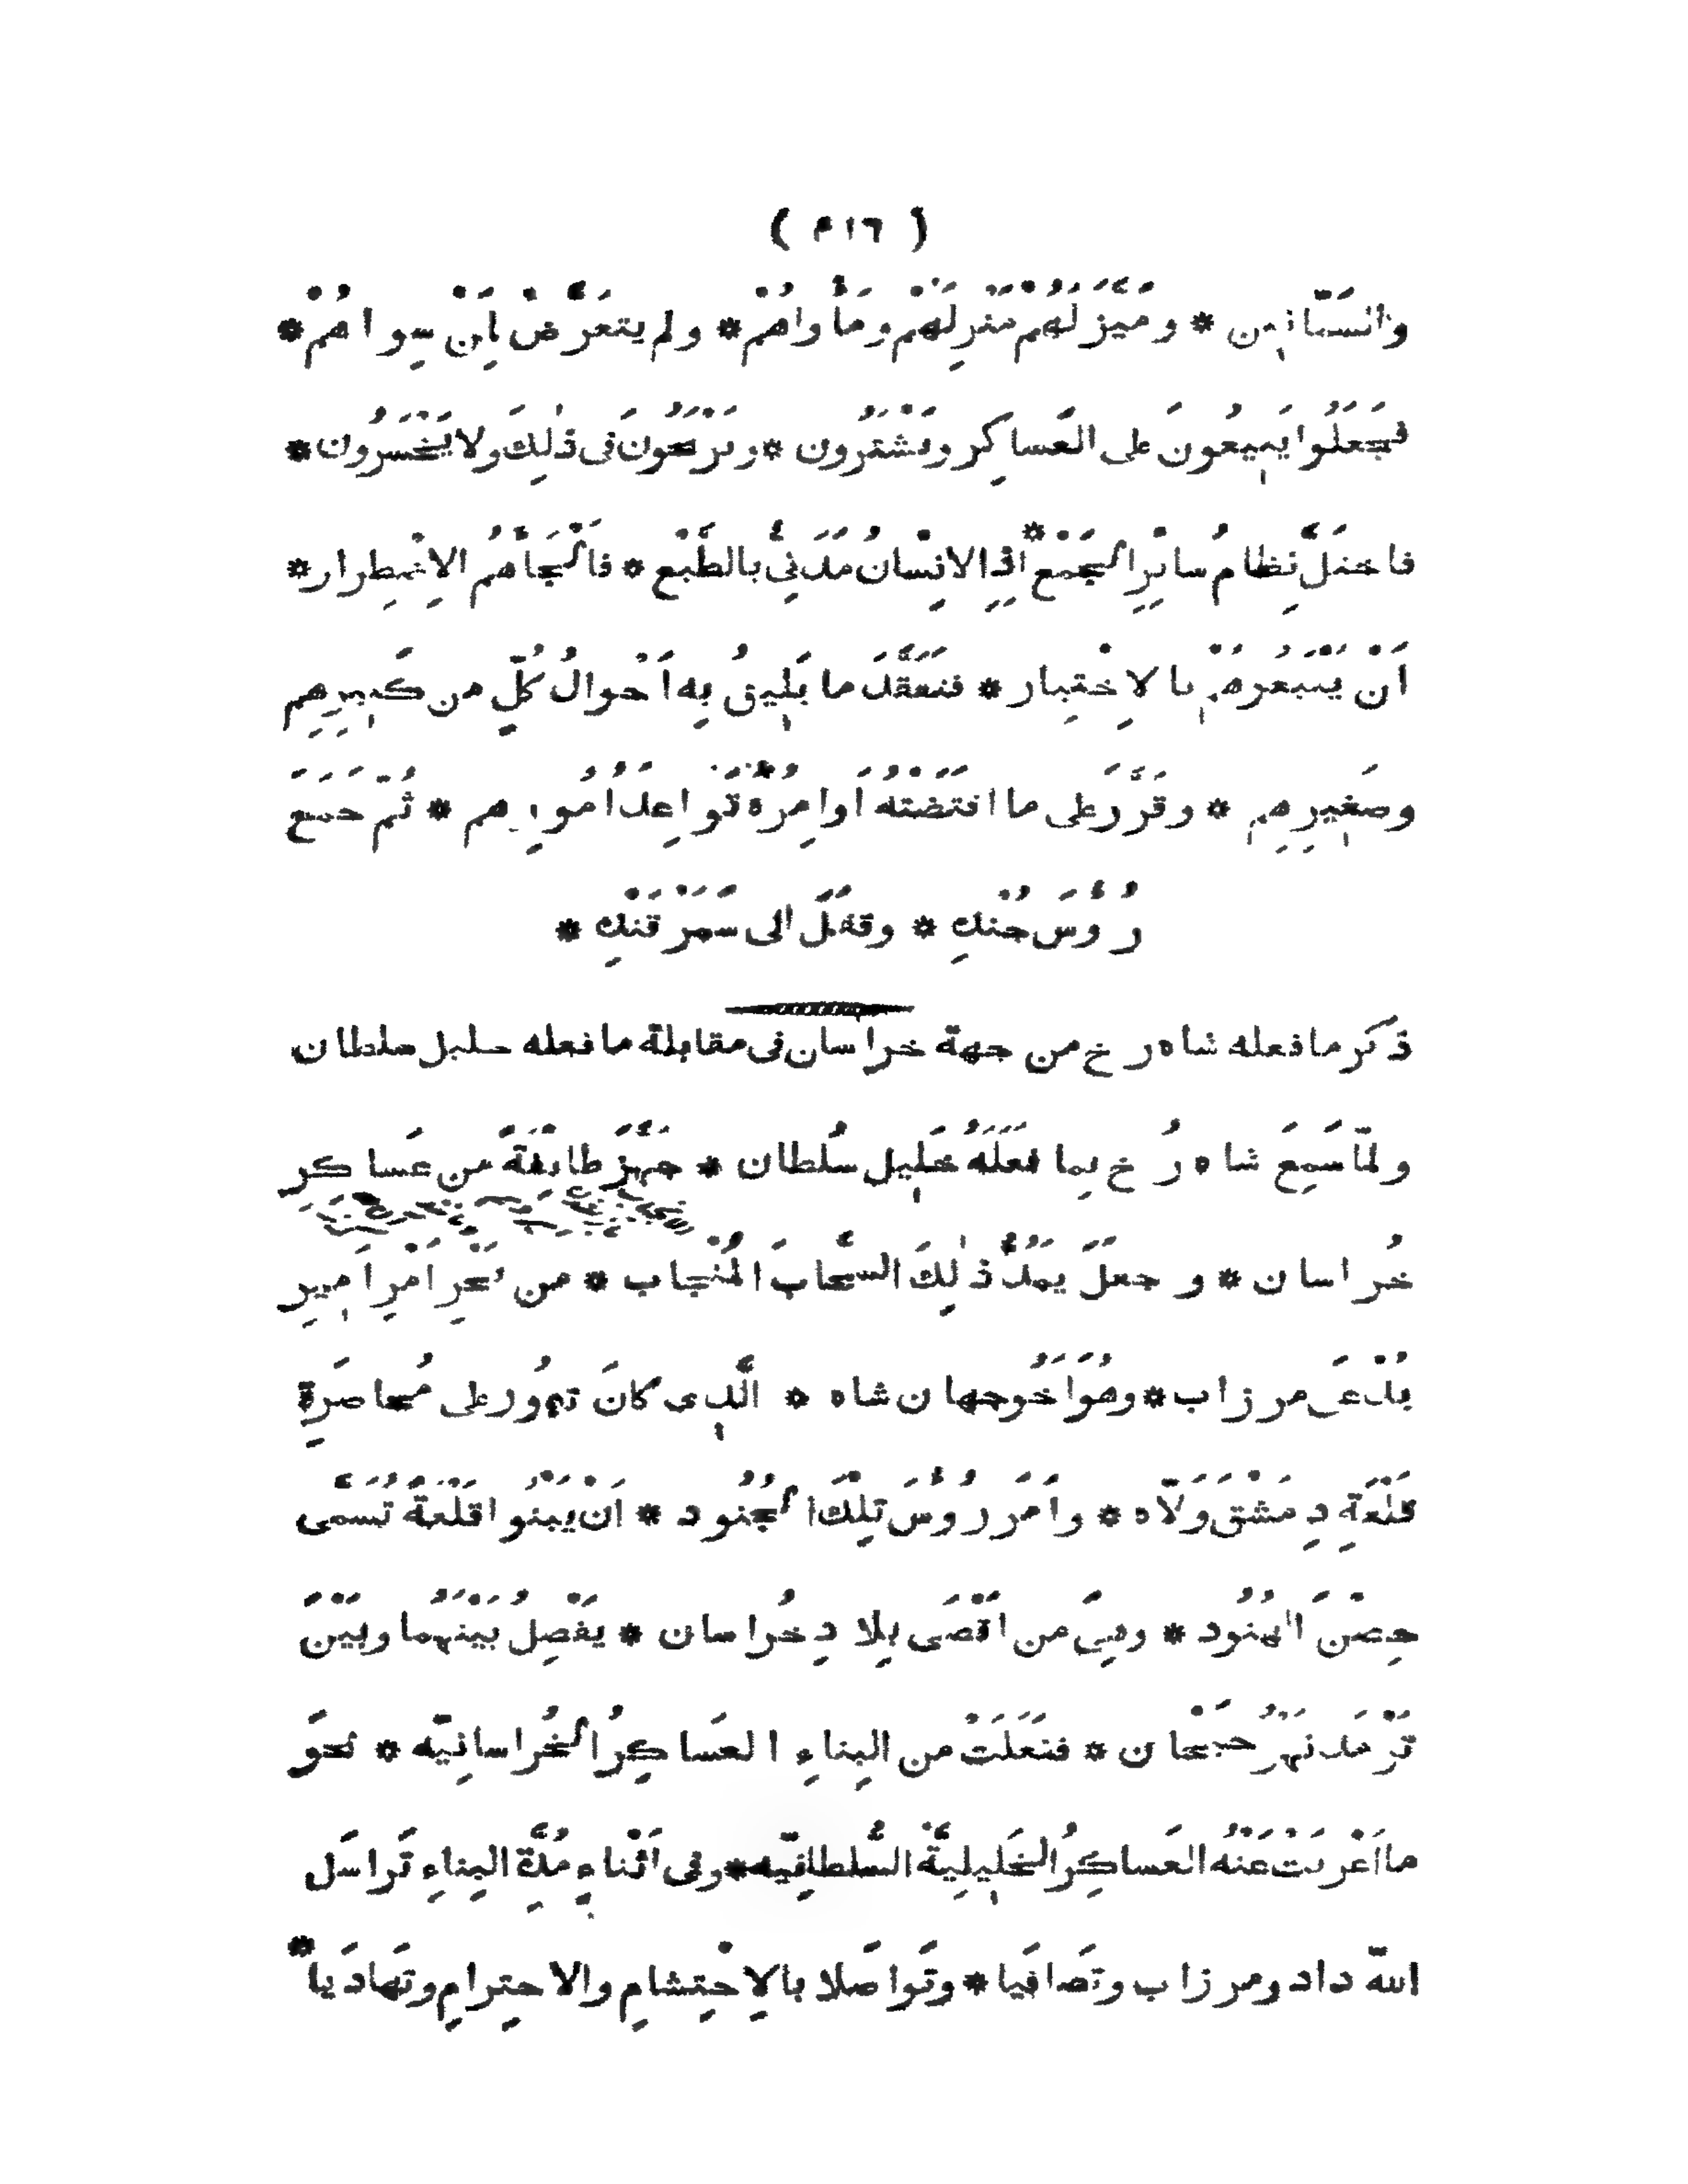 ( ٣١٦ )
والسَّمّانِين * ومَيَّزَ لَهُم مَنْزِلَهُمْ ومَأْواهُمْ * ولم يتعَرَّضْ لِمَنْ سِواهُمْ *
فجَعَلُوا يَبِيعُونَ على العَساكِر ويَشْتَرُون * ويَرْبَحُونَ فى ذٰلِكَ ولا يَخْسَرُون *
فاختَلَّ نِظامُ سائِرِ الجَمْع * اذِ الاِنْسانُ مَدَنِيٌّ بالطَّبْع * فاَلْجَأَهُمُ الاِضْطِرار *
اَنْ بالاِخْتِبار * فتعَقَّدَ ما يَلِيقُ بِه اَحْوالُ كُلٍّ من كَبِيرِهِم
وصَغِيرِهِم * وقرَّرعلى ما اقتَضَتْهُ اَوامِرُهُ قَواعِدَ اُمُورِهم * ثُمّ جَمَعَ
رُؤُسَ جُنْدِ * وقفَلَ الى سَمَرْقَنْدِ *
ذكر ما فعله شاه رخ من جهة خراسان فى مقابلة ما فعله خليل سلطان
ولمّا سَمِعَ شاه رُخ بِما فعَلَهُ خَلِيل سُلطان * جَهَّزَ طائِفَةً من عَساكر
خُراسان * وجعَلَ يمُدُّ ذٰلِكَ السَّحابَ المُنْجاب * من بَحْرِ اَمْرِ اَمِيرٍ
يُدْعَى مرزاب * وهُوَ اَخُو جهان شاه * الَّذِى كانَ تِيمُور على مُحاصَرَةِ
قَلْعَةِ دِمَشْقَ وَلّاه * واَمَر رُؤُسَ تلْكَ الجُنُود * اَنْ يَبْنُوا قلْعَةً تُسَمَّى
حِصْنَ الهُنُود * وهِىَ من اَقْصَى بِلادِ خُراسان * يَفْصِلُ بَيْنَهُما وبَيْنَ
تَرْمَد نَهْرُ جَيْحان * ففعَلَتْ من البِناءِ العَساكِرُ الخُراسانِيّه * نحوَ
ما اَعْربَتْ عَنْهُ العَساكِرُ الخَلِيلِيَّةُ السُّلطانِيّه * وفى اَثْناءِ مُدَّةِ البِناءِ تَراسَل
اللّه داد ومرزاب وتَصافَيا * وتَواصَلا بالاِحْتِشامِ والاحتِرامِ وتَهادَيا *